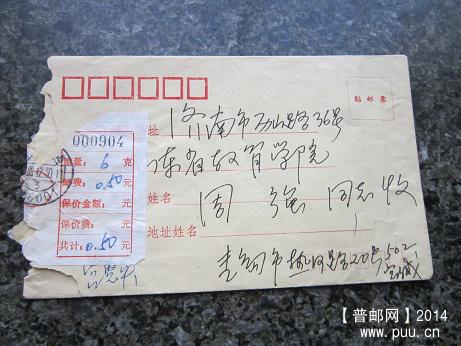 贴邮票
000904
址 济南市历山路36号
重量: 6 克
东省教育学院
邮费: 0.50 元
保价金额: 元
姓名 周强 同志收
保价费: 元
地址姓名
共计: 0.50 元
青岛市热河路20号502
【普邮网】2014
www.puu.cn